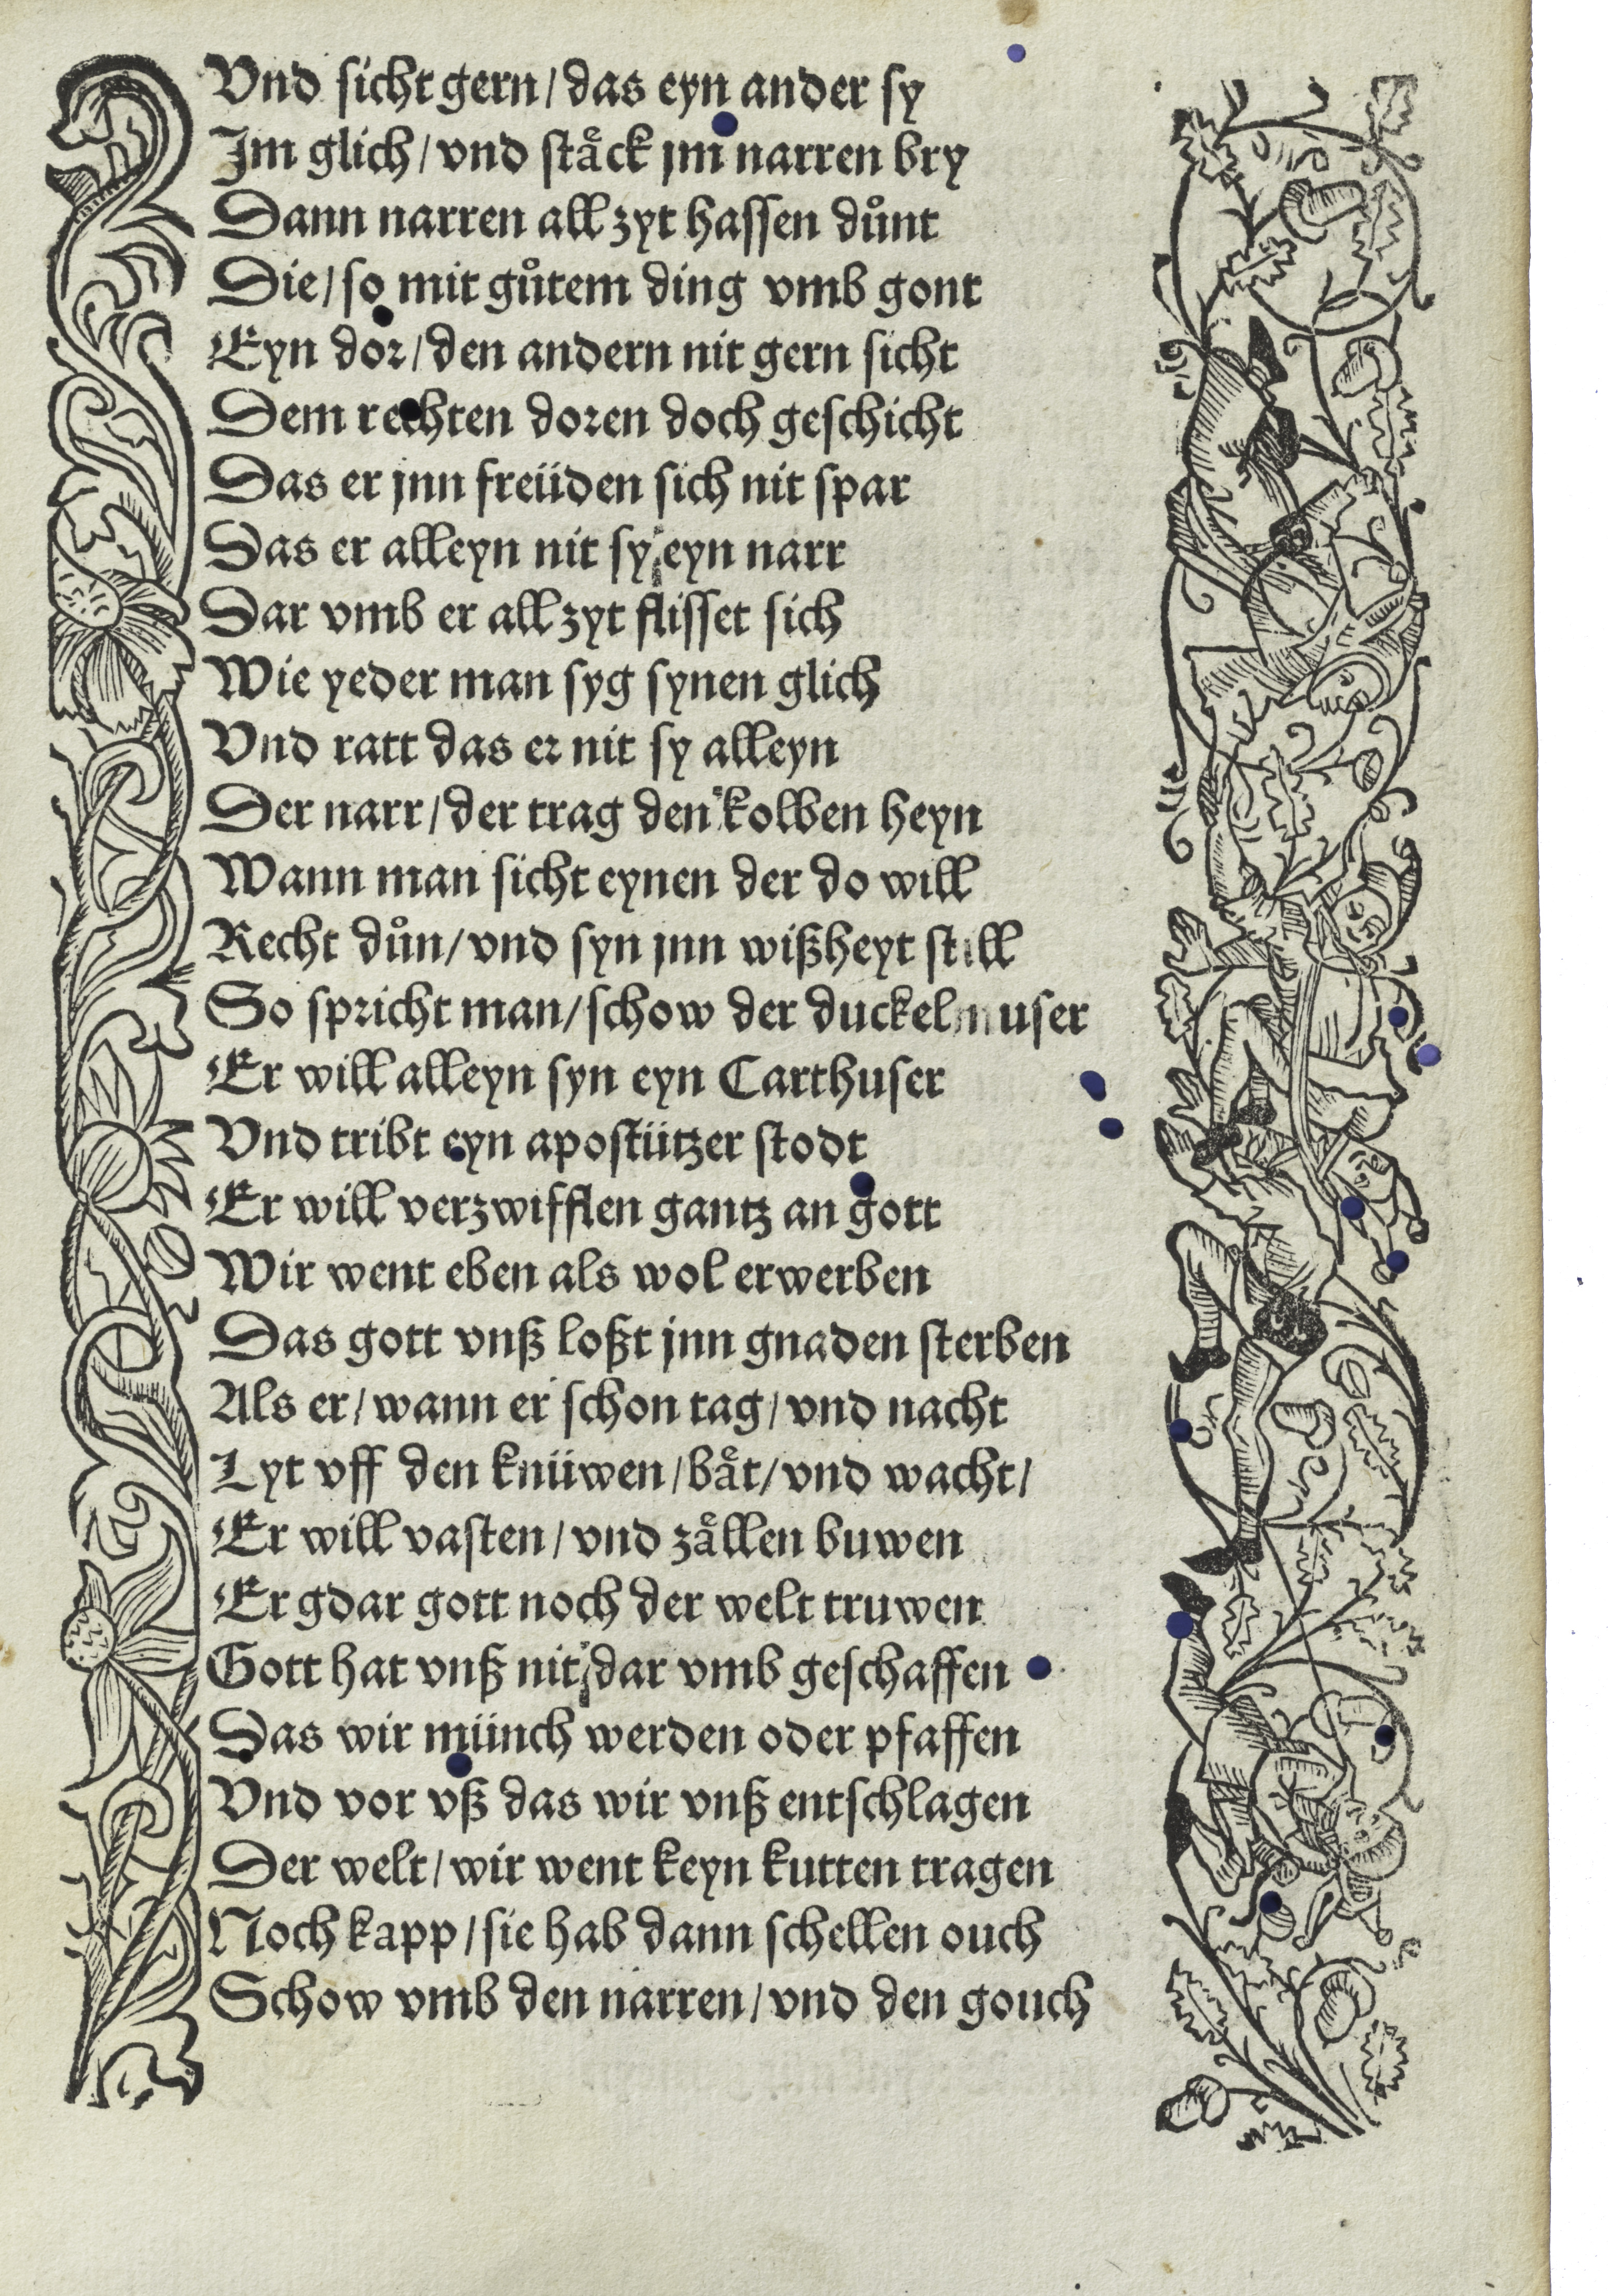 Vnd sicht gern/ das eyn ander sy
Im glich/ vnd staͤck jm narren bry
Dann narren all zyt hassen duͦnt
Die/ so mit guͦtem ding vmb gont
Eyn dor/ den andern nit gern sicht
Dem rechten doren doch geschicht
Das er jnn freüden sich nit spar
Das er alleyn nit sy eyn narr
Dar vmb er all zyt flisset sich
Wie yeder man syg synen glich
Vnd ratt das er nit sy alleyn
Der narr/ der trag den kolben heyn
Wann man sicht eynen der do will
Recht duͦn/ vnd syn jnn wißheyt still
So spricht man/ schow der duckelmuser
Er will alleyn syn eyn Carthuser
Vnd tribt eyn apostützer stodt
Er will verzwifflen gantz an gott
Wir went eben als wol erwerben
Das gott vnß loßt jnn gnaden sterben
Als er/ wann er schon tag/ vnd nacht
Lyt vff den knüwen/ baͤt/ vnd wacht/
Er will vasten/ vnd zaͤllen buwen
Er gdar gott noch der welt truwen
Gott hat vnß nit dar vmb geschaffen
Das wir münch werden oder pfaffen
Vnd vor vß das wir vnß entschlagen
Der welt/ wir went keyn kutten tragen
Noch kapp/ sie hab dann schellen ouch
Schow vmb den narren/ vnd den gouch